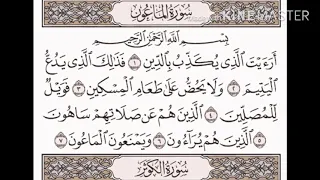 سُورَةُ الْمَاعُونِ
KINEMASTER
بِسْمِ اللَّهِ الرَّحْمَٰنِ الرَّحِيمِ
أَرَءَيْتَ الَّذِي يُكَذِّبُ بِالدِّينِ ١ فَذَٰلِكَ الَّذِي يَدُعُّ
الْيَتِيمَ ٢ وَلَا يَحُضُّ عَلَىٰ طَعَامِ الْمِسْكِينِ ٣ فَوَيْلٌ
لِّلْمُصَلِّينَ ٤ الَّذِينَ هُمْ عَن صَلَاتِهِمْ سَاهُونَ
٥ الَّذِينَ هُمْ يُرَآءُونَ ٦ وَيَمْنَعُونَ الْمَاعُونَ ٧
سُورَةُ الْكَوْثَرِ